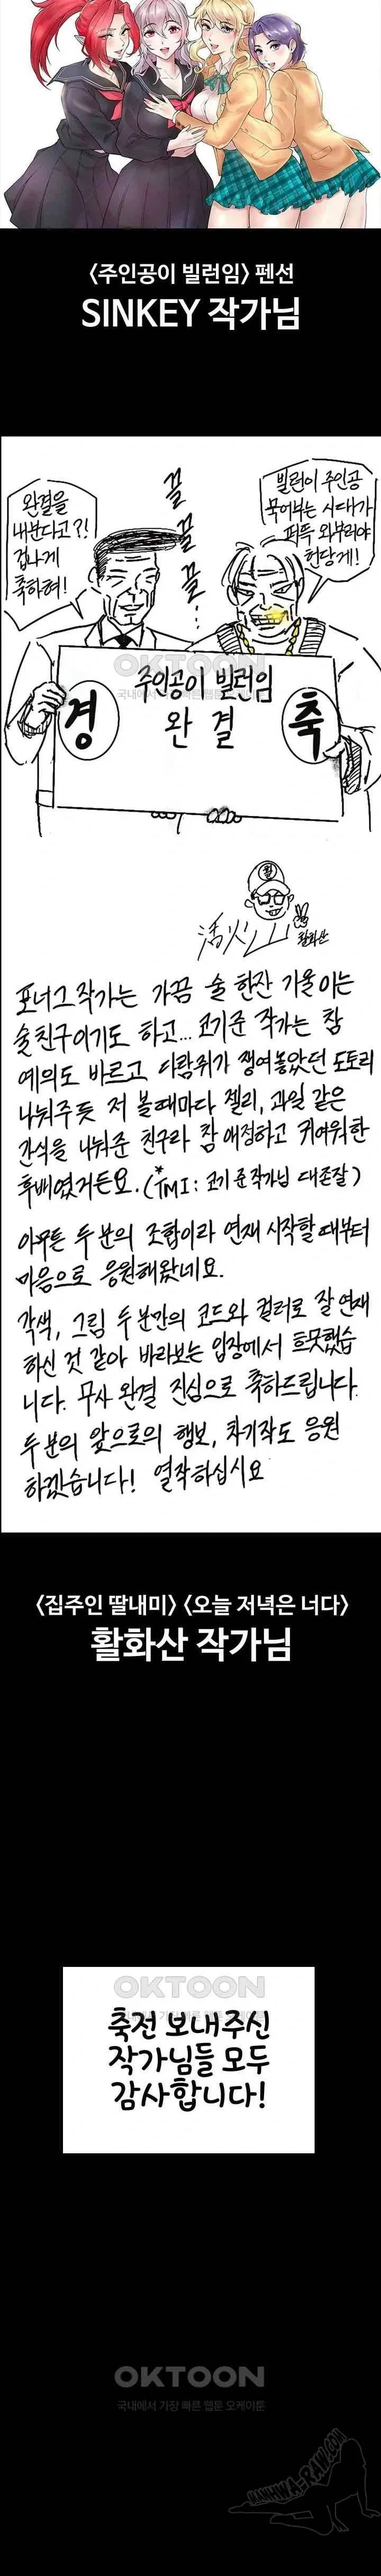 <주인공이 빌런임> 펜선
SINKEY 작가님
완결을
내분다고?!
겁나게
축하혀!
끌
끌
끌...
빌런이 주인공
묵어부는 시대가
퍼뜩 와부러야
헌당게!
OKTOON
국내에서 가장 빠른 웹툰 오케이툰
주인공이 빌런임
경
완결
축
활
活火山
활화산
포너그 작가는 가끔 술 한잔 기울이는
술친구이기도 하고... 코기준 작가는 참
예의도 바르고 다람쥐가 쟁여놓았던 도토리
나눠주듯 저 볼때마다 젤리, 과일 같은
간식을 나눠준 친구라 참 애정하고 귀여워한
후배였거든요. (*TMI: 코기준작가님 대존잘)
아무튼 두 분의 조합이라 연재 시작할때부터
마음으로 응원해왔네요.
각색, 그림 두 분간의 코드와 컬러로 잘 연재
하신 것 같아 바라보는 입장에서 흐뭇했습
니다. 무사 완결 진심으로 축하드립니다.
두 분의 앞으로의 행보, 차기작도 응원
하겠습니다! 열작하십시요
<집주인 딸내미> <오늘 저녁은 너다>
활화산 작가님
OKTOON
국내에서 가장 빠른 웹툰 오케이툰
축전 보내주신
작가님들 모두
감사합니다!
OKTOON
국내에서 가장 빠른 웹툰 오케이툰
MANHWA-RAW.COM